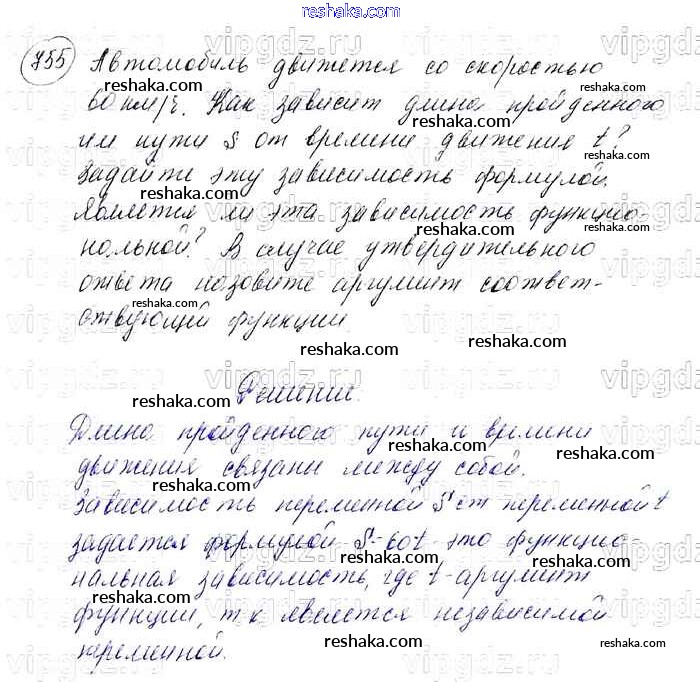 reshaka.com
755 Автомобиль движется со скоростью
60 км/ч. Как зависит длина пройденного
им пути S от времени движения t?
Задайте эту зависимость формулой.
Является ли эта зависимость функцио-
нальной? В случае утвердительного
ответа назовите аргумент соответ-
ствующей функции.
Решение.
Длина пройденного пути и времени
движения связаны между собой.
Зависимость переменной S от переменной t
задается формулой S=60t - это функцио-
нальная зависимость, где t - аргумент
функции, т к является независимой
переменной.